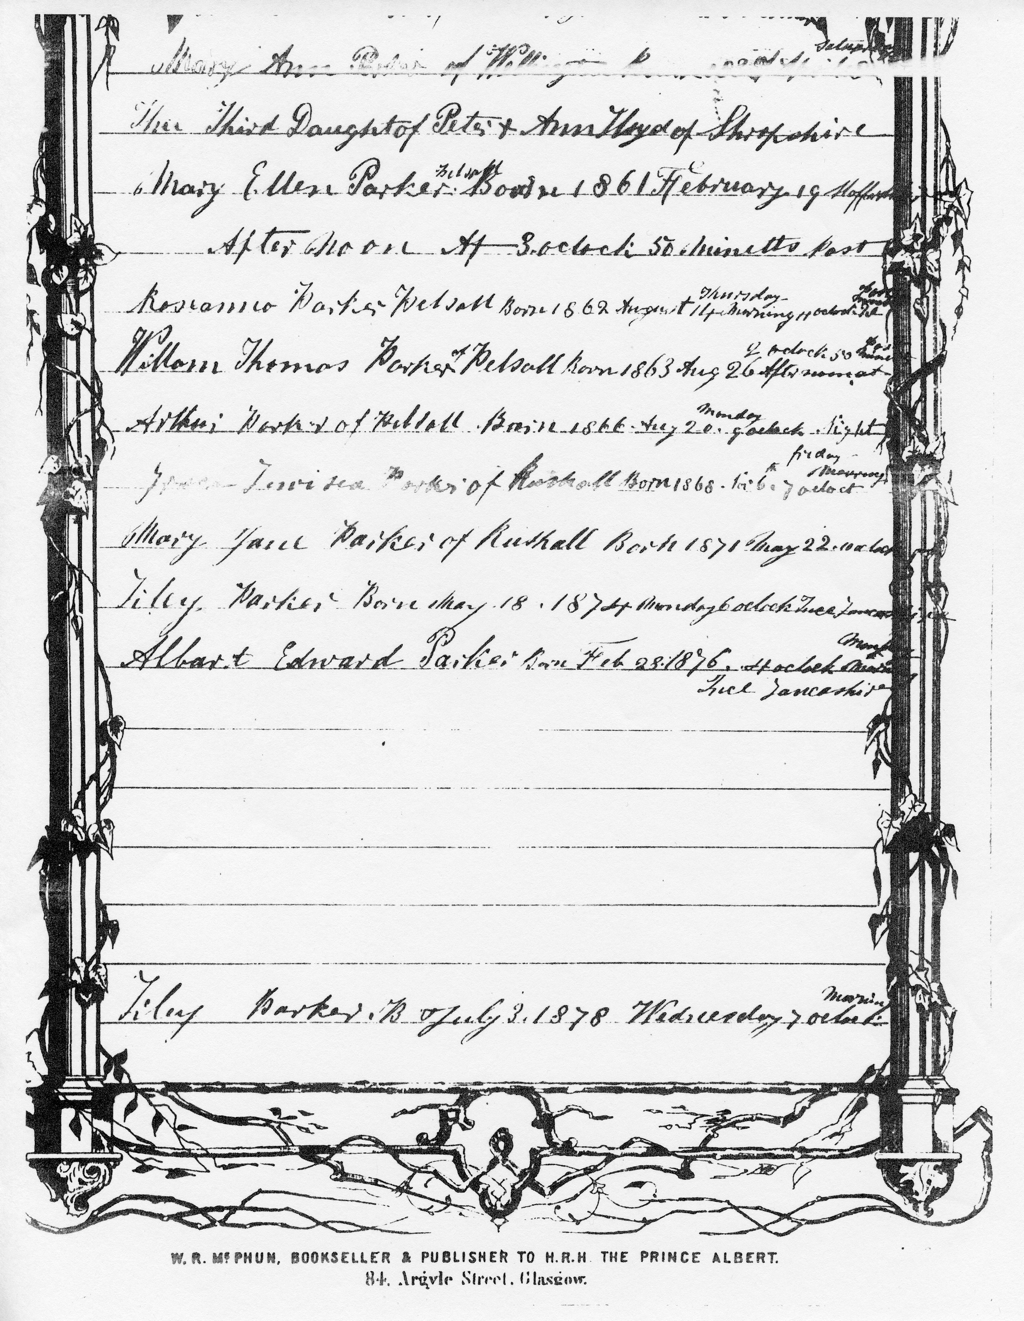 Saturday
Mary Ann Parker of
The Third Daught of Peter & Ann Lloyd of Shropshire
Pelsall
Mary Ellen Parker Born 1861 February 19
After Noon At 3 oclock 50 Minetts Past
Thursday
Roseanno Parker Pelsall Born 1862 August 14 Morning 4 oclock
oclock 50
Willam Thomas Parker of Pelsall Born 1863 Aug 26 Afternoon at
Monday
Arthur Parker of Pelsall Born 1866 Aug 20. 9 oclock Night
friday
Morning
Parker of Rushall Born 1868 7 oclock
Mary Jane Parker of Rushall Born 1871 May 22. oclock
Tiley Parker Born May 18. 1874 Monday 6 oclock Ince Lancashire
Albart Edward Parker Born Feb 28. 1876. 4 oclock
Ince Lancashire
Morning
Tiley Parker. B of July 3. 1878 Wednesday 7 oclock
W. R. McPHUN, BOOKSELLER & PUBLISHER TO H.R.H. THE PRINCE ALBERT.
84, Argyle Street, Glasgow.